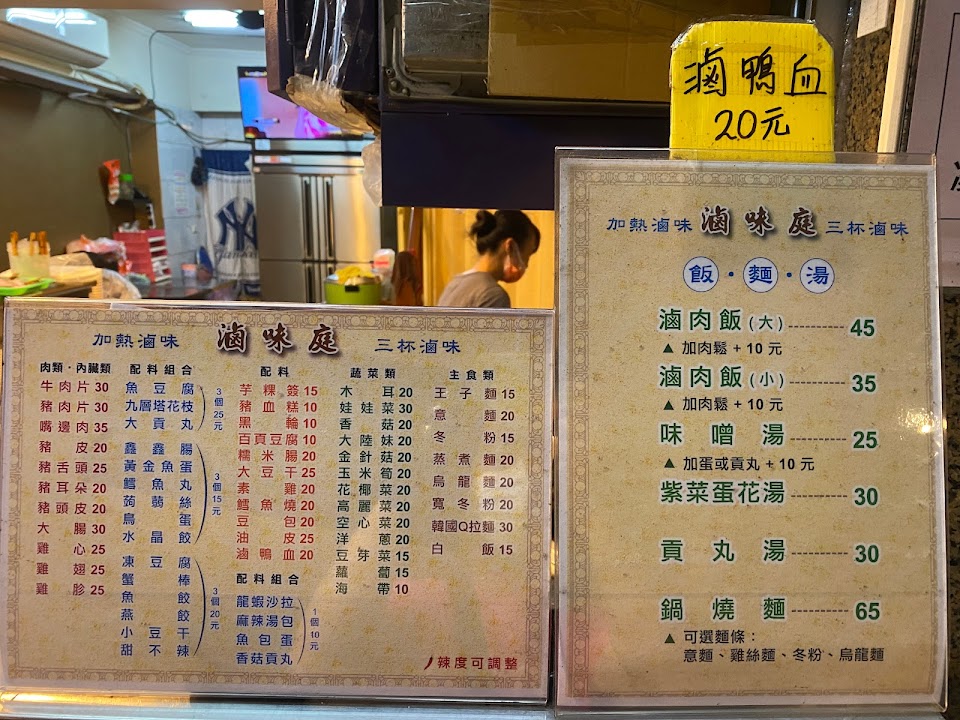 滷鴨血
20元
加熱滷味 滷味庭 三杯滷味
飯・麵・湯
滷肉飯(大)----------45
▲加肉鬆+10元
滷肉飯(小)----------35
▲加肉鬆+10元
味噌湯----------25
▲加蛋或貢丸+10元
紫菜蛋花湯----------30
貢丸湯----------30
鍋燒麵----------65
▲可選麵條：
意麵、雞絲麵、冬粉、烏龍麵
加熱滷味 滷味庭 三杯滷味
肉類・內臟類
牛肉片 30
豬肉片 30
嘴邊肉 35
豬皮 20
豬舌頭 25
豬耳朵 20
豬頭皮 20
大腸 30
雞心 25
雞翅 25
雞胗 25
配料組合
魚豆腐
九層塔花枝
大貢丸
3個25元
鑫鑫腸
黃金魚蛋
鱈魚丸
蒟蒻絲
鳥蛋
水晶餃
3個15元
凍豆腐
蟹棒
魚餃
燕餃
小豆干
甜不辣
3個20元
配料
芋粿簽 15
豬血糕 10
黑輪 10
百頁豆腐 10
糯米腸 20
大豆干 25
素雞 20
鱈魚燒 20
豆包 20
油皮 25
滷鴨血 20
配料組合
龍蝦沙拉
麻辣湯包
魚包蛋
香菇貢丸
1個10元
蔬菜類
木耳 20
娃娃菜 30
香菇 20
大陸妹 20
金針菇 20
玉米筍 20
花椰菜 20
高麗菜 20
空心菜 20
洋蔥 20
豆芽菜 15
蘿蔔 15
海帶 10
主食類
王子麵 15
意麵 20
冬粉 15
蒸煮麵 20
烏龍麵 20
寬冬粉 20
韓國Q拉麵 30
白飯 15
辣度可調整